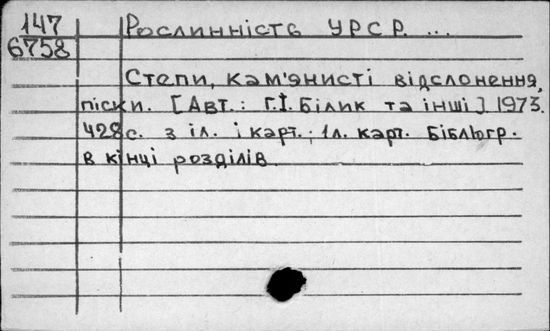 147 Рослинність УРСР. ...
6758
Степи, кам'янисті відслонення,
піски. [Авт.: Г.І. Білик та інші] 1973.
428с. з іл. і карт.; 1л. карт. Бібліогр.
в кінці розділів